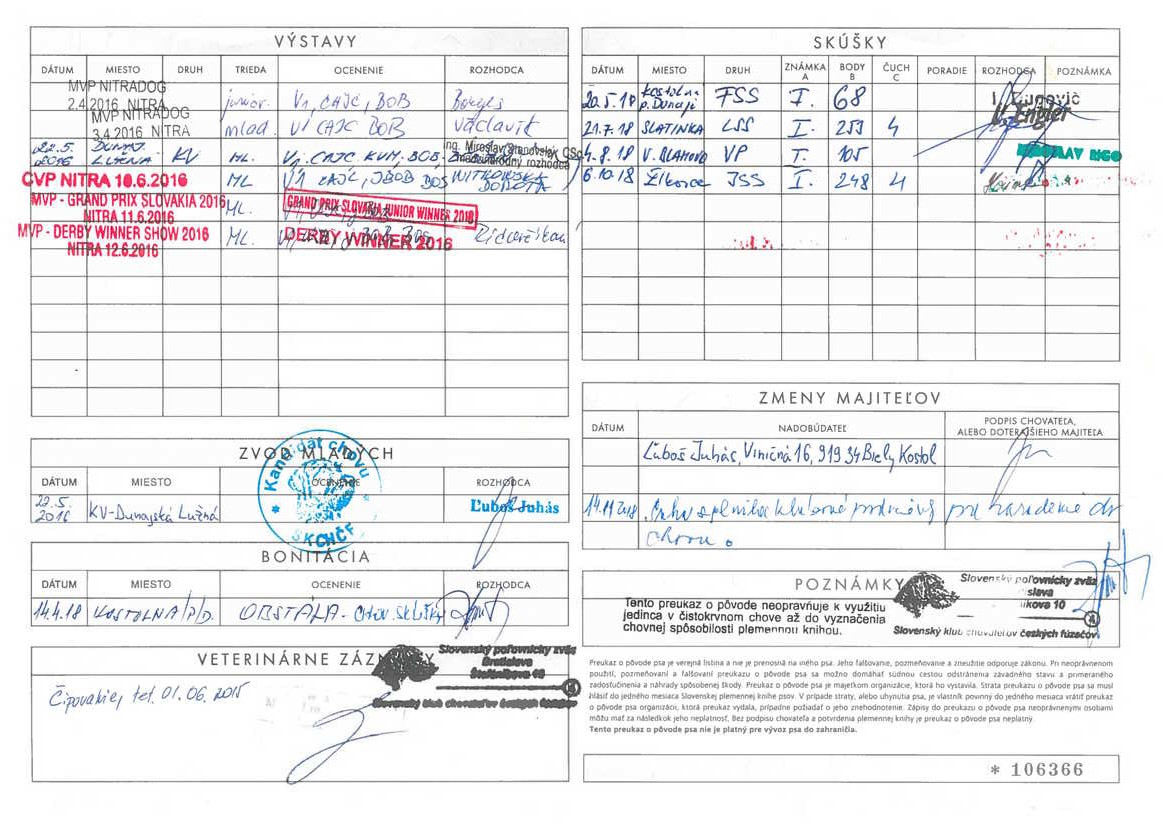 VÝSTAVY
DÁTUM MIESTO DRUH TRIEDA OCENENIE ROZHODCA
MVP NITRADOG
2.4.2016 NITRA junior. V1, CAJC, BOB Borges
MVP NITRADOG
3.4.2016 NITRA mlad. V1 CAJC BOB Václavik
22.5. 2016 DUNAJ. LUŽNÁ KV ML. V1, CAJC KVM, BOB Ing. Miroslav CSc.
medzinárodný rozhodca
CVP NITRA 10.6.2016 ML V1 CAJC, JBOB BOS WITKOWSKA DOROTA
MVP - GRAND PRIX SLOVAKIA 2016
NITRA 11.6.2016 ML. GRAND PRIX SLOVAKIA JUNIOR WINNER 2016
MVP - DERBY WINNER SHOW 2016
NITRA 12.6.2016 ML. DERBY WINNER 2016
ZVOD MLADÝCH
DÁTUM MIESTO OCENENIE ROZHODCA
22.5. 2016 KV-Dunajská Lužná Ľuboš Juhás
Kandidát chovu
SKCHČF
BONITÁCIA
DÁTUM MIESTO OCENENIE ROZHODCA
14.4.18 KOSTOLNA P/D. OBSTÁLA - chov. skúšky
VETERINÁRNE
Slovenský poľovnícky zväz
Bratislava
Štefánikova 10
Slovenský klub chovateľov českých fúzačov
Čipovakiej tet. 01.06.2015
SKÚŠKY
DÁTUM MIESTO DRUH ZNÁMKA A BODY B ČUCH C PORADIE ROZHODCA POZNÁMKA
20.5.18 Kostolná p. Dunaji FSS I. 68
V. Engler
21.7.18 SLATINKA LSS I. 253 4
4.8.18 V. BLAHOVO VP I. 105
6.10.18 JSS I. 248 4
ZMENY MAJITEĽOV
DÁTUM NADOBÚDATEĽ PODPIS CHOVATEĽA,
ALEBO DOTERAJŠIEHO MAJITEĽA
Ľuboš Juhás, Viničná 16, 919 34 Biely Kostol
14.11.2018 splnila klubové podmienky pre zaradenie do
chovu.
POZNÁMKY
Tento preukaz o pôvode neopravňuje k využitiu
jedinca v čistokrvnom chove až do vyznačenia
chovnej spôsobilosti plemennou knihou.
Slovenský poľovnícky zväz
Slovenský klub chovateľov českých fúzačov
Preukaz o pôvode psa je verejná listina a nie je prenosná na iného psa. Jeho falšovanie, pozmeňovanie a zneužitie odporuje zákonu. Pri neoprávnenom
použití, pozmeňovaní a falšovaní preukazu o pôvode psa sa možno domáhať súdnou cestou odstránenia závadného stavu a primeraného
zadosťučinenia a náhrady spôsobenej škody. Preukaz o pôvode psa je majetkom organizácie, ktorá ho vystavila. Strata preukazu o pôvode psa sa musí
hlásiť do jedného mesiaca Slovenskej plemennej knihe psov. V prípade straty, alebo uhynutia psa, je vlastník povinný do jedného mesiaca vrátiť preukaz
o pôvode psa organizácii, ktorá preukaz vydala, prípadne požiadať o jeho znehodnotenie. Zápisy do preukazu o pôvode psa neoprávnenými osobami
môžu mať za následok jeho neplatnosť. Bez podpisu chovateľa a potvrdenia plemennej knihy je preukaz o pôvode psa neplatný.
Tento preukaz o pôvode psa nie je platný pre vývoz psa do zahraničia.
* 106366